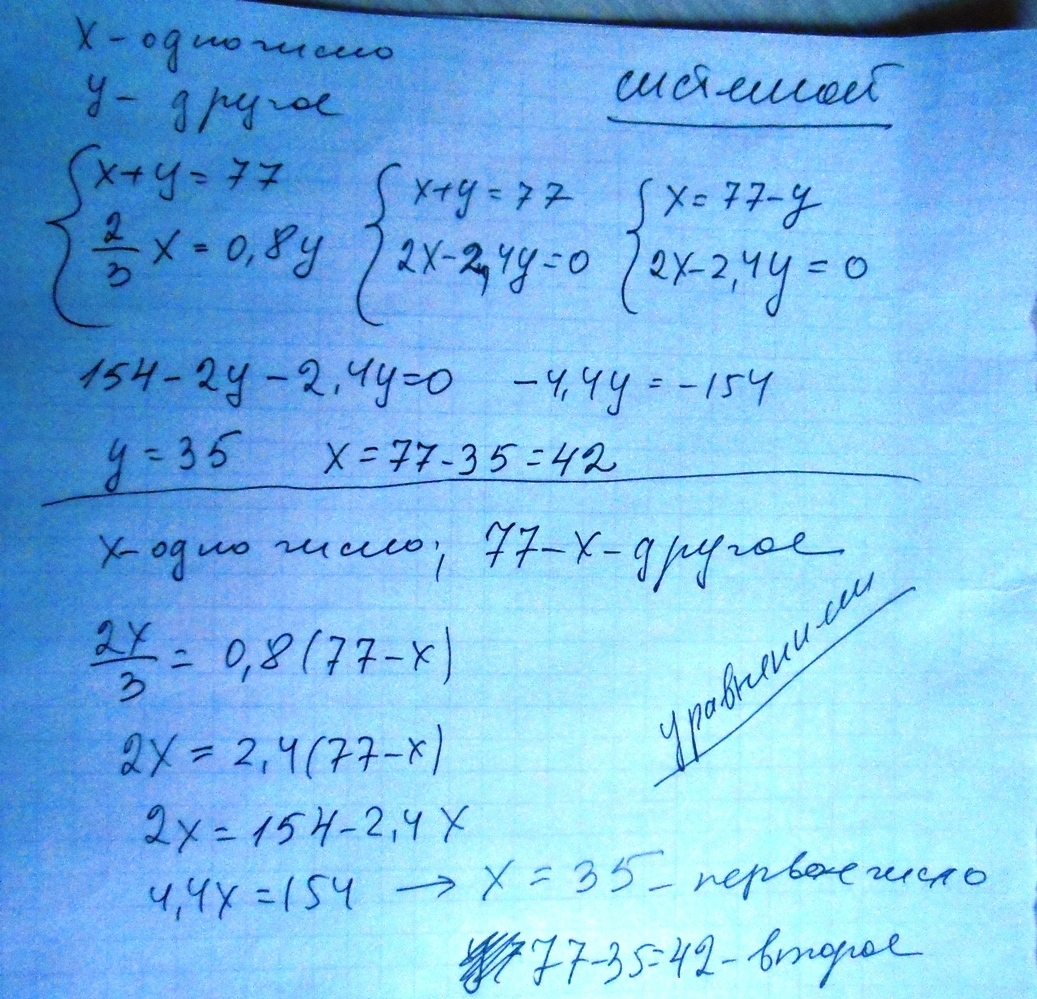 x - одно число
y - другое
системой
{ x+y = 77
2/3 x = 0,8y
{ x+y = 77
2x-2,4y=0
{ x = 77-y
2x-2,4y = 0
154-2y-2,4y=0   -4,4y = -154
y = 35   x = 77-35 = 42
x - одно число; 77-x - другое
2x/3 = 0,8(77-x)
уравнением
2x = 2,4(77-x)
2x = 154-2,4x
4,4x = 154 → x = 35 - первое число
77-35=42 - второе